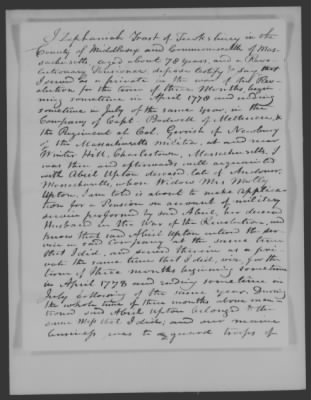 I Zephaniah Frost of Tewksbury in the
County of Middlesex and Commonwealth of Mas-
sachusetts aged about 78 years, and a Rev-
olutionary Pensioner, depose & testify & say that
I served as a private in the War of the Revo-
olution for the term of three Months begin-
ning sometime in April 1778 and ending
sometime in July of the same year, in the
Company of Capt. Bodwell of Methuen, &
the Regiment of Col. Gerrish of Newbury
of the Massachusetts militia, at and near
Winter Hill, Charlestown, Massachusetts. I
was then and afterwards well acquainted
with Abiel Upton deceased late of Andover,
Massachusetts, whose Widow Mrs. Upton, I am told is about to make applica-
tion for a Pension on account of military
service performed by said Abiel, her deceased
Husband in the War of the Revolution, and
know that said Abiel Upton entered the ser-
vice in said Company at the same time
that I did, and served therein as a pri-
vate the same time that I did, viz. for the
time of three months beginning sometime
in April 1778 and ending sometime in
July following of the same year. During
the whole time of three months above men-
tioned said Abiel Upton belonged to the
same Mess that I did; and our
business was to guard troops of